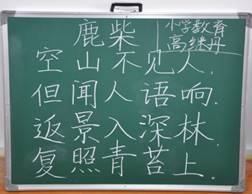 鹿柴
小学教育
高继丹
空山不见人,
但闻人语响.
返景入深林
复照青苔上.